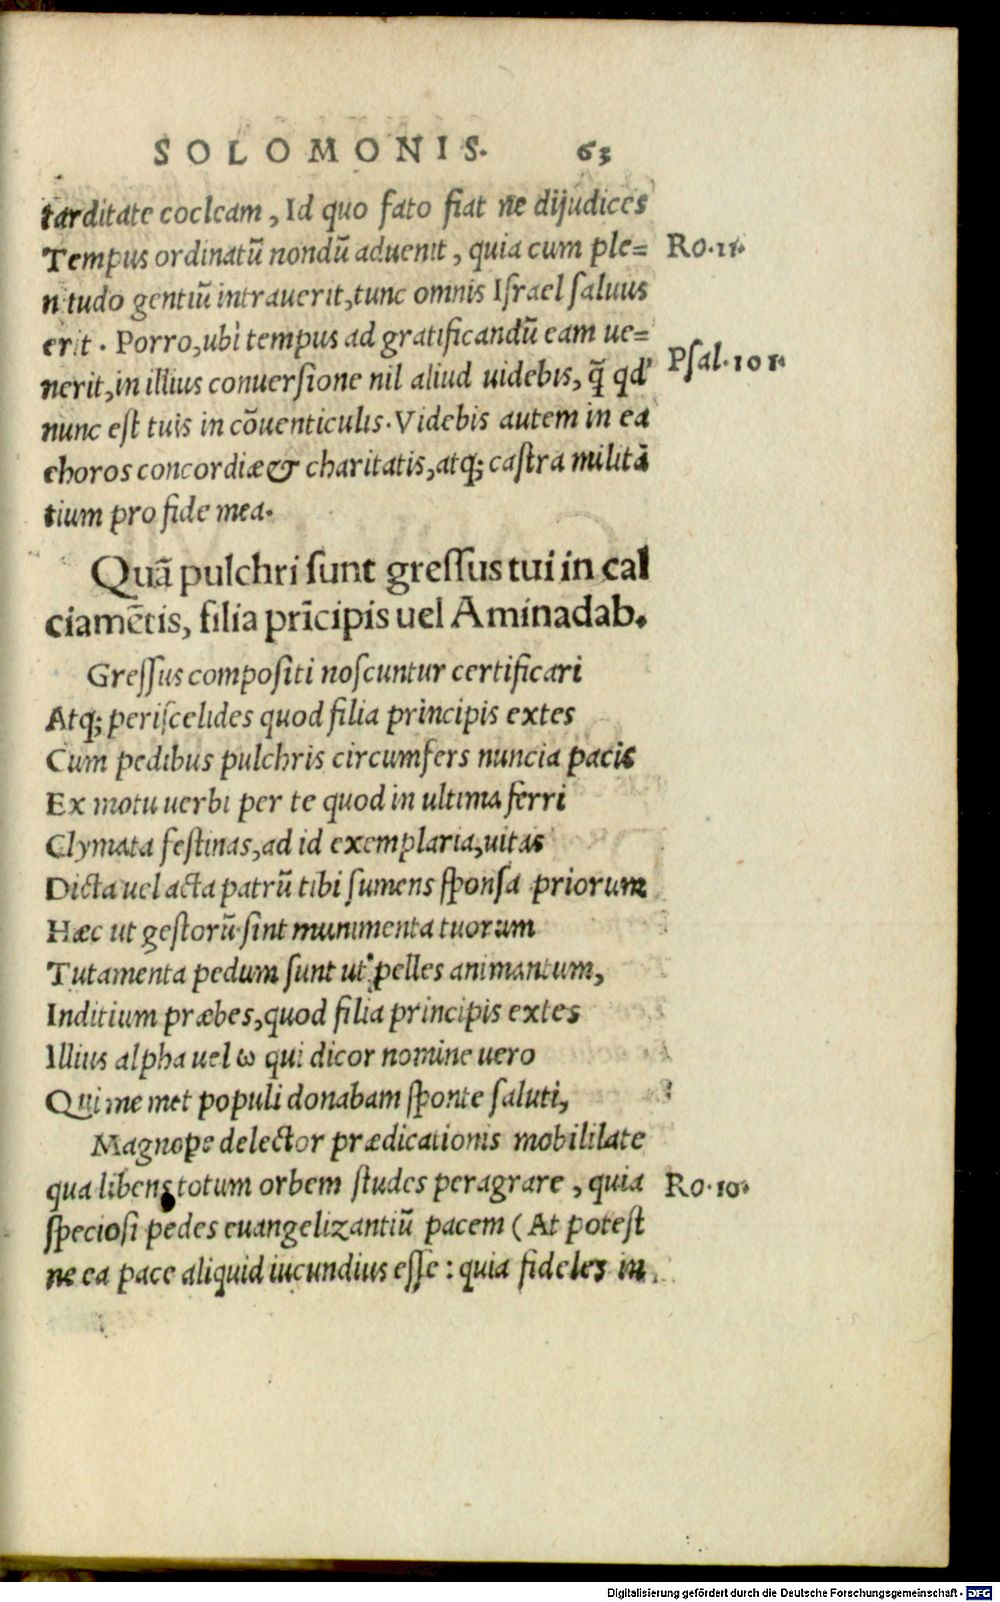 SOLOMONIS. 63
tarditate cocleam, Id quo fato fiat ne dijudices
Tempus ordinatū nondū aduenit, quia cum ple=
n tudo gentiū intrauerit, tunc omnis Israel saluus
Ro.11.
erit. Porro, ubi tempus ad gratificandū eam ue=
nerit, in illius conuersione nil aliud uidebis, q̃ qd'
Psal.101.
nunc est tuis in cōuenticulis. Videbis autem in ea
choros concordiæ & charitatis, atq; castra militā
tium pro fide mea.
Quā pulchri sunt gressus tui in cal
ciamētis, filia prīcipis uel Aminadab.
Gressus compositi noscuntur certificari
Atq; periscelides quod filia principis extes
Cum pedibus pulchris circumfers nuncia pacis
Ex motu uerbi per te quod in ultima ferri
Clymata festinas, ad id exemplaria, uitas
Dicta uel acta patrū tibi sumens sponsa priorum
Hæc ut gestorū sint munimenta tuorum
Tutamenta pedum sunt ut pelles animantum,
Inditium præbes, quod filia principis extes
Illius alpha uel ω qui dicor nomine uero
Qui me met populi donabam sponte saluti,
Magnope delector prædicationis mobilitate
qua libens totum orbem studes peragrare, quia
Ro.10.
speciosi pedes euangelizantiū pacem (At potest
ne ea pace aliquid iucundius esse: quia fideles in
Digitalisierung gefördert durch die Deutsche Forschungsgemeinschaft - DFG